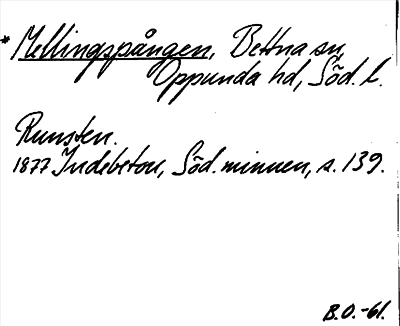 * Mellingspången, Bettna sn,
Oppunda hd, Söd. l.
Runsten.
1877 Indebetou, Söd. minnen, s. 139.
B.O.-61.